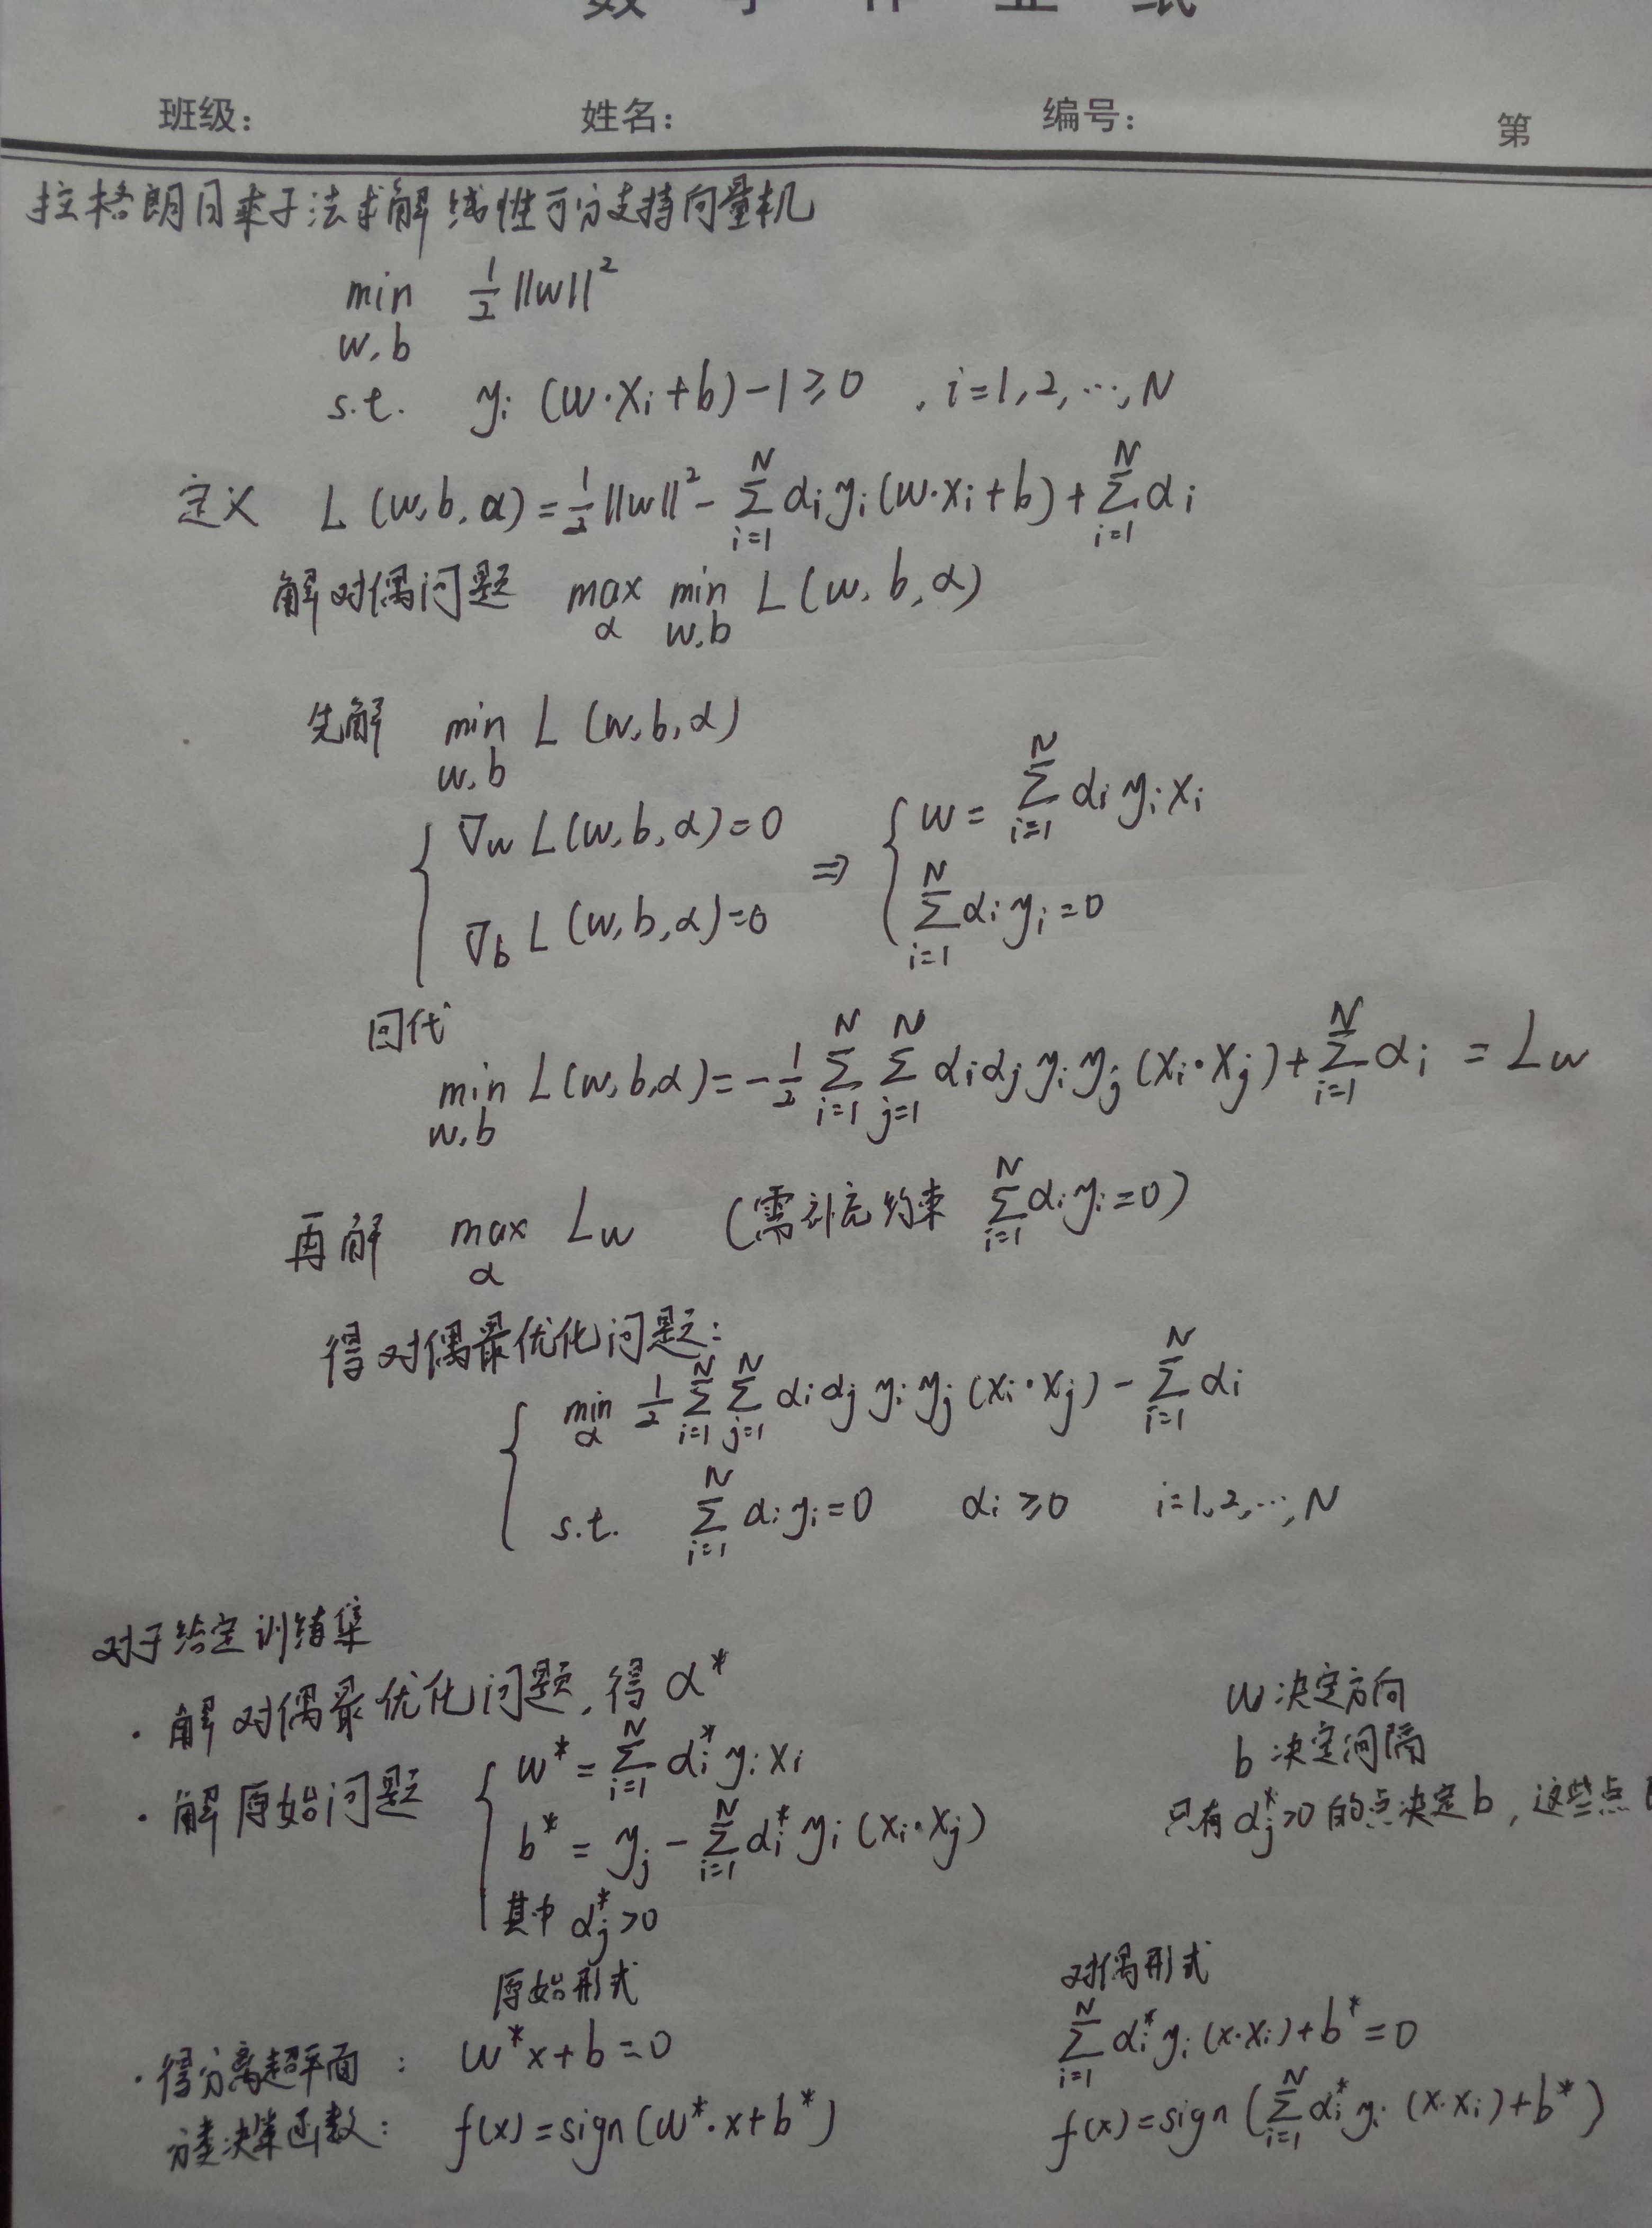 班级: 姓名: 编号: 第
拉格朗日乘子法求解线性可分支持向量机
min ½||w||²
w,b
s.t. yᵢ(w·xᵢ+b)-1≥0 , i=1,2,…,N
定义 L(w,b,α)=½||w||²-∑ᵢ₌₁ᴺ αᵢyᵢ(w·xᵢ+b)+∑ᵢ₌₁ᴺ αᵢ
解对偶问题 max min L(w,b,α)
α w,b
先解 min L(w,b,α)
w,b
{ ∇w L(w,b,α)=0 ⇒ { w=∑ᵢ₌₁ᴺ αᵢyᵢxᵢ
∇b L(w,b,α)=0 ∑ᵢ₌₁ᴺ αᵢyᵢ=0
回代
min L(w,b,α)=-½∑ᵢ₌₁ᴺ∑ⱼ₌₁ᴺ αᵢαⱼyᵢyⱼ(xᵢ·xⱼ)+∑ᵢ₌₁ᴺ αᵢ = Lw
w,b
再解 max Lw (需补充约束 ∑ᵢ₌₁ᴺ αᵢyᵢ=0)
α
得对偶最优化问题:
{ min ½∑ᵢ₌₁ᴺ∑ⱼ₌₁ᴺ αᵢαⱼyᵢyⱼ(xᵢ·xⱼ)-∑ᵢ₌₁ᴺ αᵢ
α
s.t. ∑ᵢ₌₁ᴺ αᵢyᵢ=0 αᵢ≥0 i=1,2,…,N
对于给定训练集
· 解对偶最优化问题,得α*
· 解原始问题 { w*=∑ᵢ₌₁ᴺ αᵢ*yᵢxᵢ
b*=yⱼ-∑ᵢ₌₁ᴺ αᵢ*yᵢ(xᵢ·xⱼ)
其中 αⱼ*>0
w决定方向
b决定间隔
只有αⱼ*>0的点决定b,这些点
原始形式 对偶形式
· 得分离超平面: w*x+b=0 ∑ᵢ₌₁ᴺ αᵢ*yᵢ(x·xᵢ)+b*=0
分类决策函数: f(x)=sign(w*·x+b*) f(x)=sign(∑ᵢ₌₁ᴺ αᵢ*yᵢ(x·xᵢ)+b*)